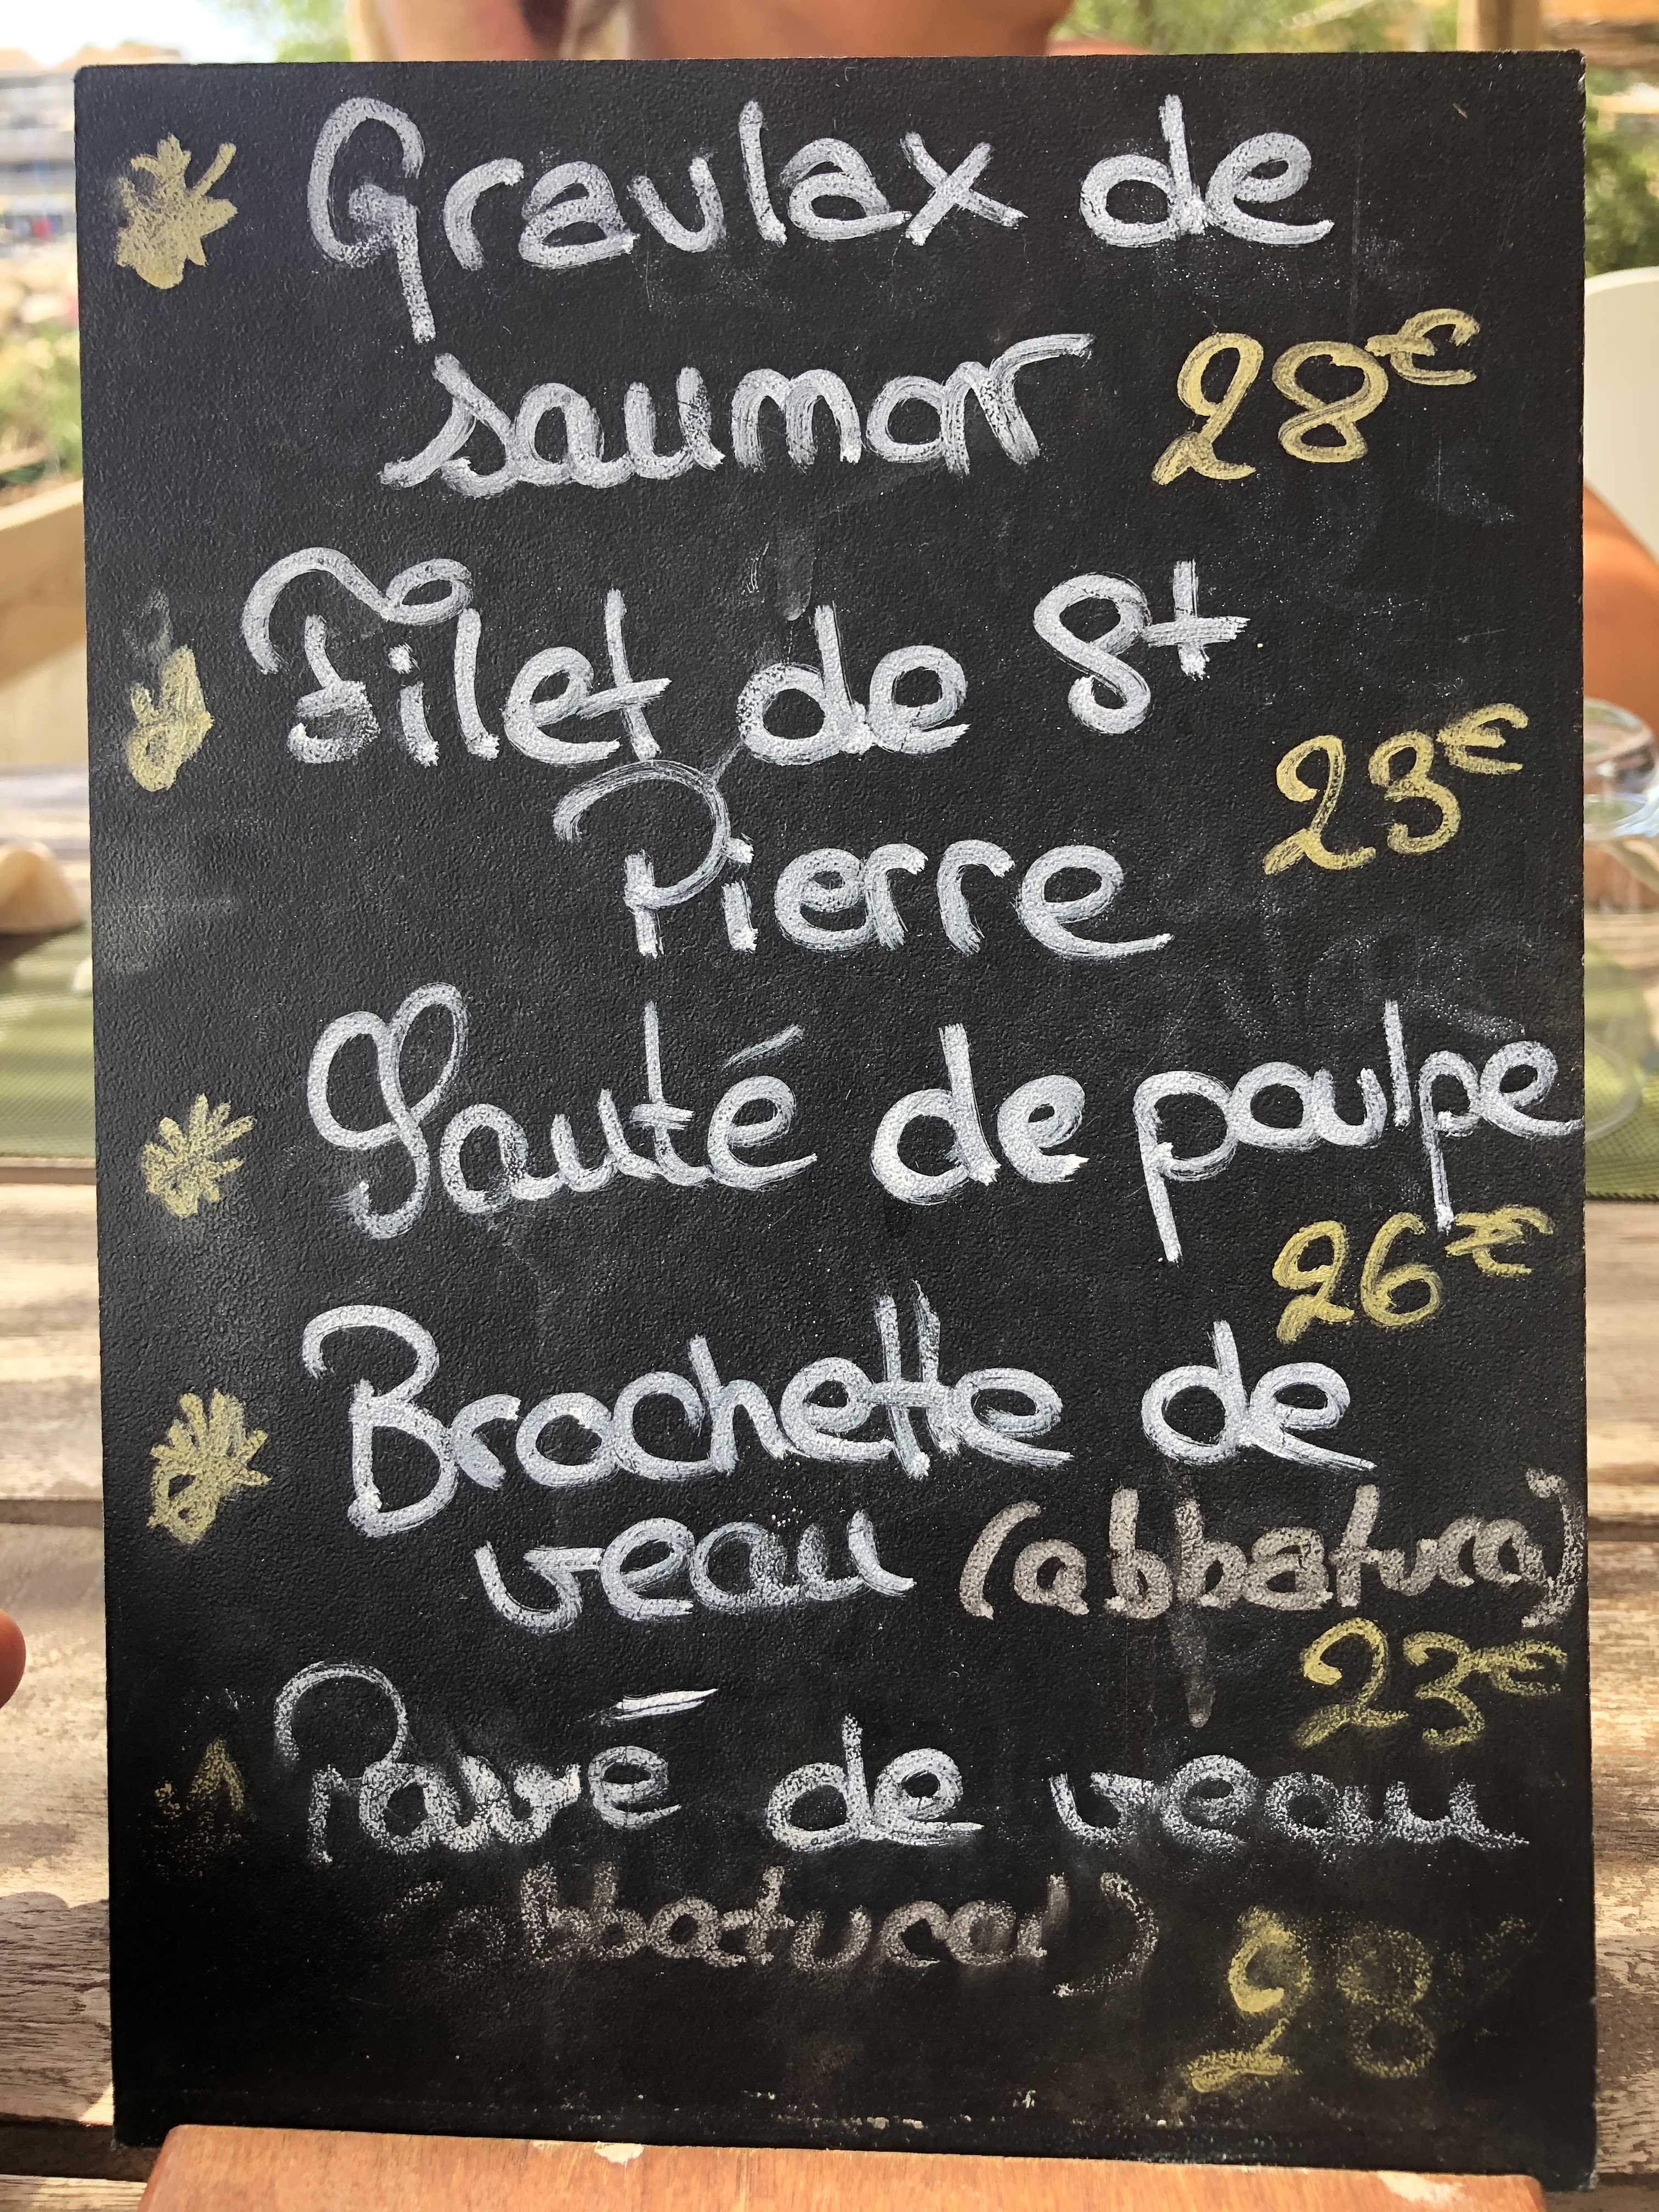 Gravlax de
saumon 28€
Filet de St
Pierre 23€
Sauté de poulpe
26€
Brochette de
veau (abbatucci)
23€
Pavé de veau
28